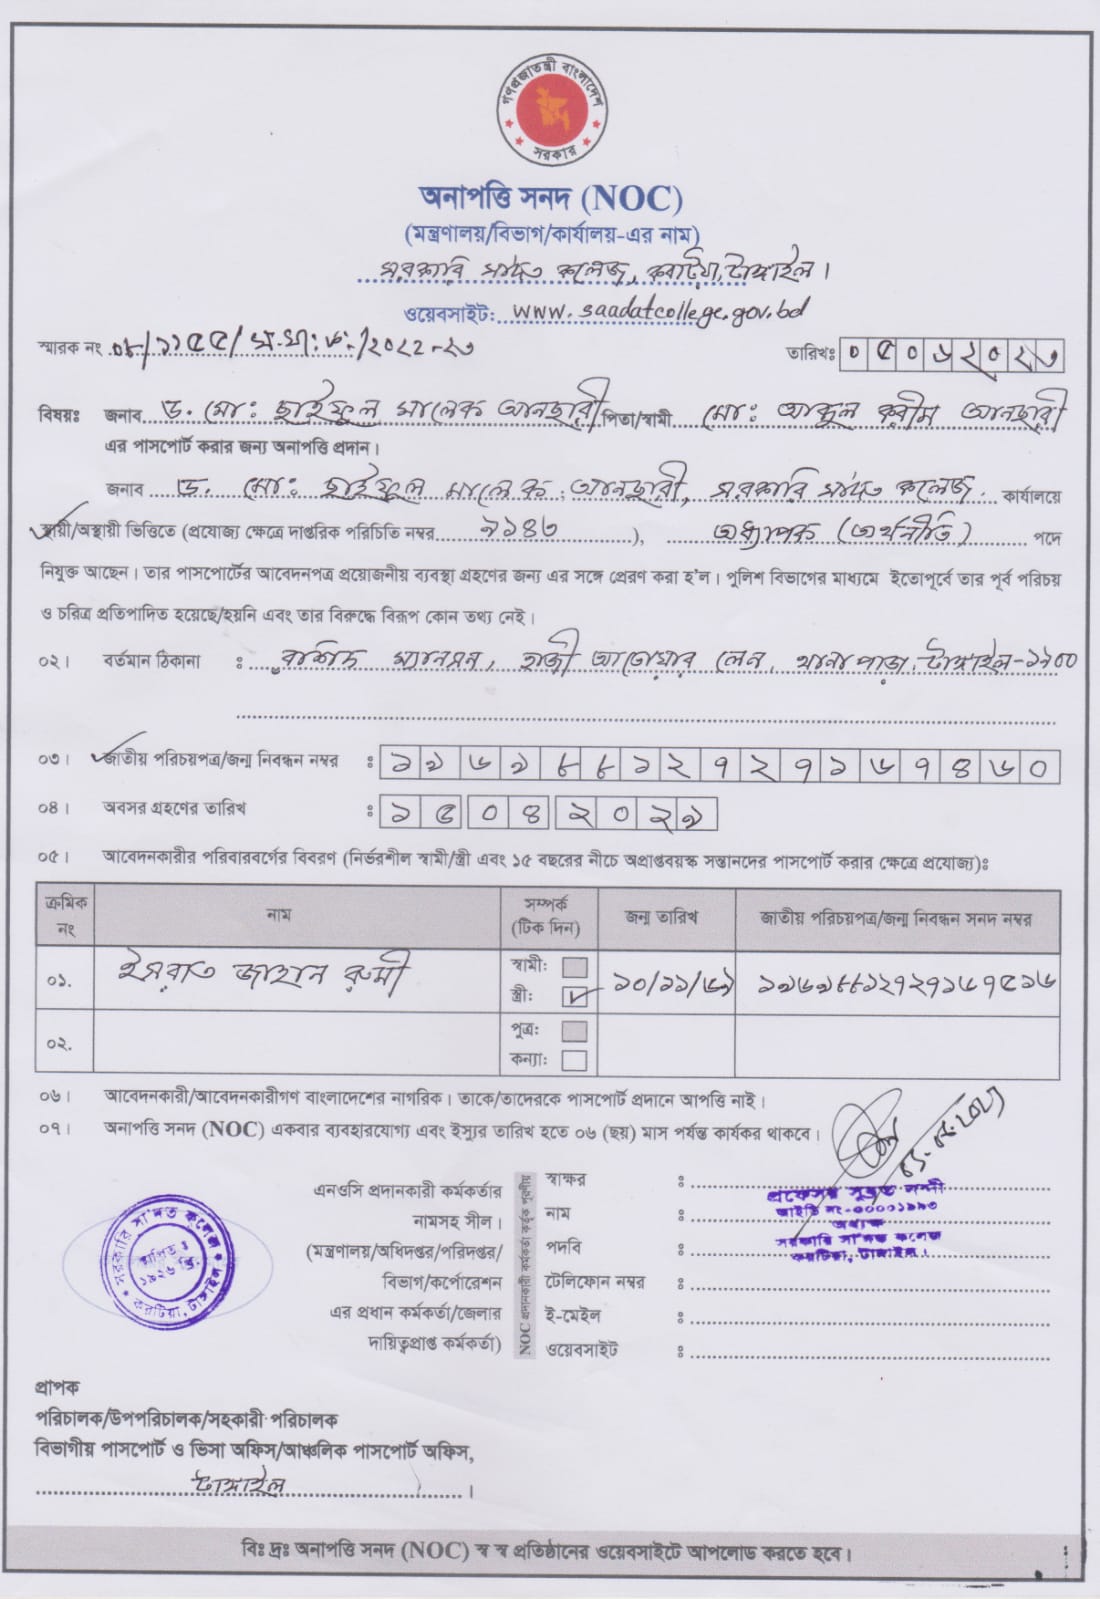 গণপ্রজাতন্ত্রী বাংলাদেশ
সরকার
অনাপত্তি সনদ (NOC)
(মন্ত্রণালয়/বিভাগ/কার্যালয়-এর নাম)
সরকারি সা'দত কলেজ, করটিয়া, টাঙ্গাইল।
ওয়েবসাইট: www.saadatcollege.gov.bd
স্মারক নং ০৮/১১৫৫/স.সা:ক:/২০২২-২৩ তারিখঃ ০৫০৬২০২৩
বিষয়ঃ জনাব ড. মো: ছাইফুল মালেক আনছারী পিতা/স্বামী মো: আব্দুল করীম আনছারী
এর পাসপোর্ট করার জন্য অনাপত্তি প্রদান।
জনাব ড. মো: ছাইফুল মালেক আনছারী, সরকারি সা'দত কলেজ. কার্যালয়ে
স্থায়ী/অস্থায়ী ভিত্তিতে (প্রযোজ্য ক্ষেত্রে দাপ্তরিক পরিচিতি নম্বর ৯১৪৬), অধ্যাপক (অর্থনীতি) পদে
নিযুক্ত আছেন। তার পাসপোর্টের আবেদনপত্র প্রয়োজনীয় ব্যবস্থা গ্রহণের জন্য এর সঙ্গে প্রেরণ করা হ'ল। পুলিশ বিভাগের মাধ্যমে ইতোপূর্বে তার পূর্ব পরিচয়
ও চরিত্র প্রতিপাদিত হয়েছে/হয়নি এবং তার বিরুদ্ধে বিরূপ কোন তথ্য নেই।
০২। বর্তমান ঠিকানা ঃ রশিদ ম্যানসন, হাজী আতোয়ার লেন, থানা পাড়া, টাঙ্গাইল-১৯০০
০৩। জাতীয় পরিচয়পত্র/জন্ম নিবন্ধন নম্বর ঃ ১৯৬৯৮৮১২৭২৭১৬৭৪৬০
০৪। অবসর গ্রহণের তারিখ ঃ ১৫০৪২০২৯
০৫। আবেদনকারীর পরিবারবর্গের বিবরণ (নির্ভরশীল স্বামী/স্ত্রী এবং ১৫ বছরের নীচে অপ্রাপ্তবয়স্ক সন্তানদের পাসপোর্ট করার ক্ষেত্রে প্রযোজ্য)ঃ
ক্রমিক নং নাম সম্পর্ক (টিক দিন) জন্ম তারিখ জাতীয় পরিচয়পত্র/জন্ম নিবন্ধন সনদ নম্বর
০১. ইসরাত জাহান রুমী স্বামী: স্ত্রী: ১০/১১/৬৯ ১৯৬৯৮৮১২৭২৭১৬৭৫১৬
০২. পুত্র: কন্যা:
০৬। আবেদনকারী/আবেদনকারীগণ বাংলাদেশের নাগরিক। তাকে/তাদেরকে পাসপোর্ট প্রদানে আপত্তি নাই।
০৭। অনাপত্তি সনদ (NOC) একবার ব্যবহারযোগ্য এবং ইস্যুর তারিখ হতে ০৬ (ছয়) মাস পর্যন্ত কার্যকর থাকবে।
এনওসি প্রদানকারী কর্মকর্তার
নামসহ সীল।
(মন্ত্রণালয়/অধিদপ্তর/পরিদপ্তর/
বিভাগ/কর্পোরেশন
এর প্রধান কর্মকর্তা/জেলার
দায়িত্বপ্রাপ্ত কর্মকর্তা)
NOC প্রদানকারী কর্মকর্তা কর্তৃক পূরণীয়
স্বাক্ষর ঃ
নাম ঃ
পদবি ঃ
টেলিফোন নম্বর ঃ
ই-মেইল ঃ
ওয়েবসাইট ঃ
প্রফেসর সুব্রত নন্দী
আইডি নং-০০০০১৯৯৩
অধ্যক্ষ
সরকারি সা'দত কলেজ
করটিয়া, টাঙ্গাইল।
সরকারি সা'দত কলেজ
স্থাপিত ঃ
১৯২৬ খ্রি.
করটিয়া, টাঙ্গাইল
প্রাপক
পরিচালক/উপপরিচালক/সহকারী পরিচালক
বিভাগীয় পাসপোর্ট ও ভিসা অফিস/আঞ্চলিক পাসপোর্ট অফিস,
টাঙ্গাইল।
বিঃ দ্রঃ অনাপত্তি সনদ (NOC) স্ব স্ব প্রতিষ্ঠানের ওয়েবসাইটে আপলোড করতে হবে।